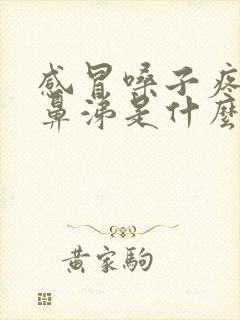 感冒嗓子疼
鼻涕是什麼
黄家駒